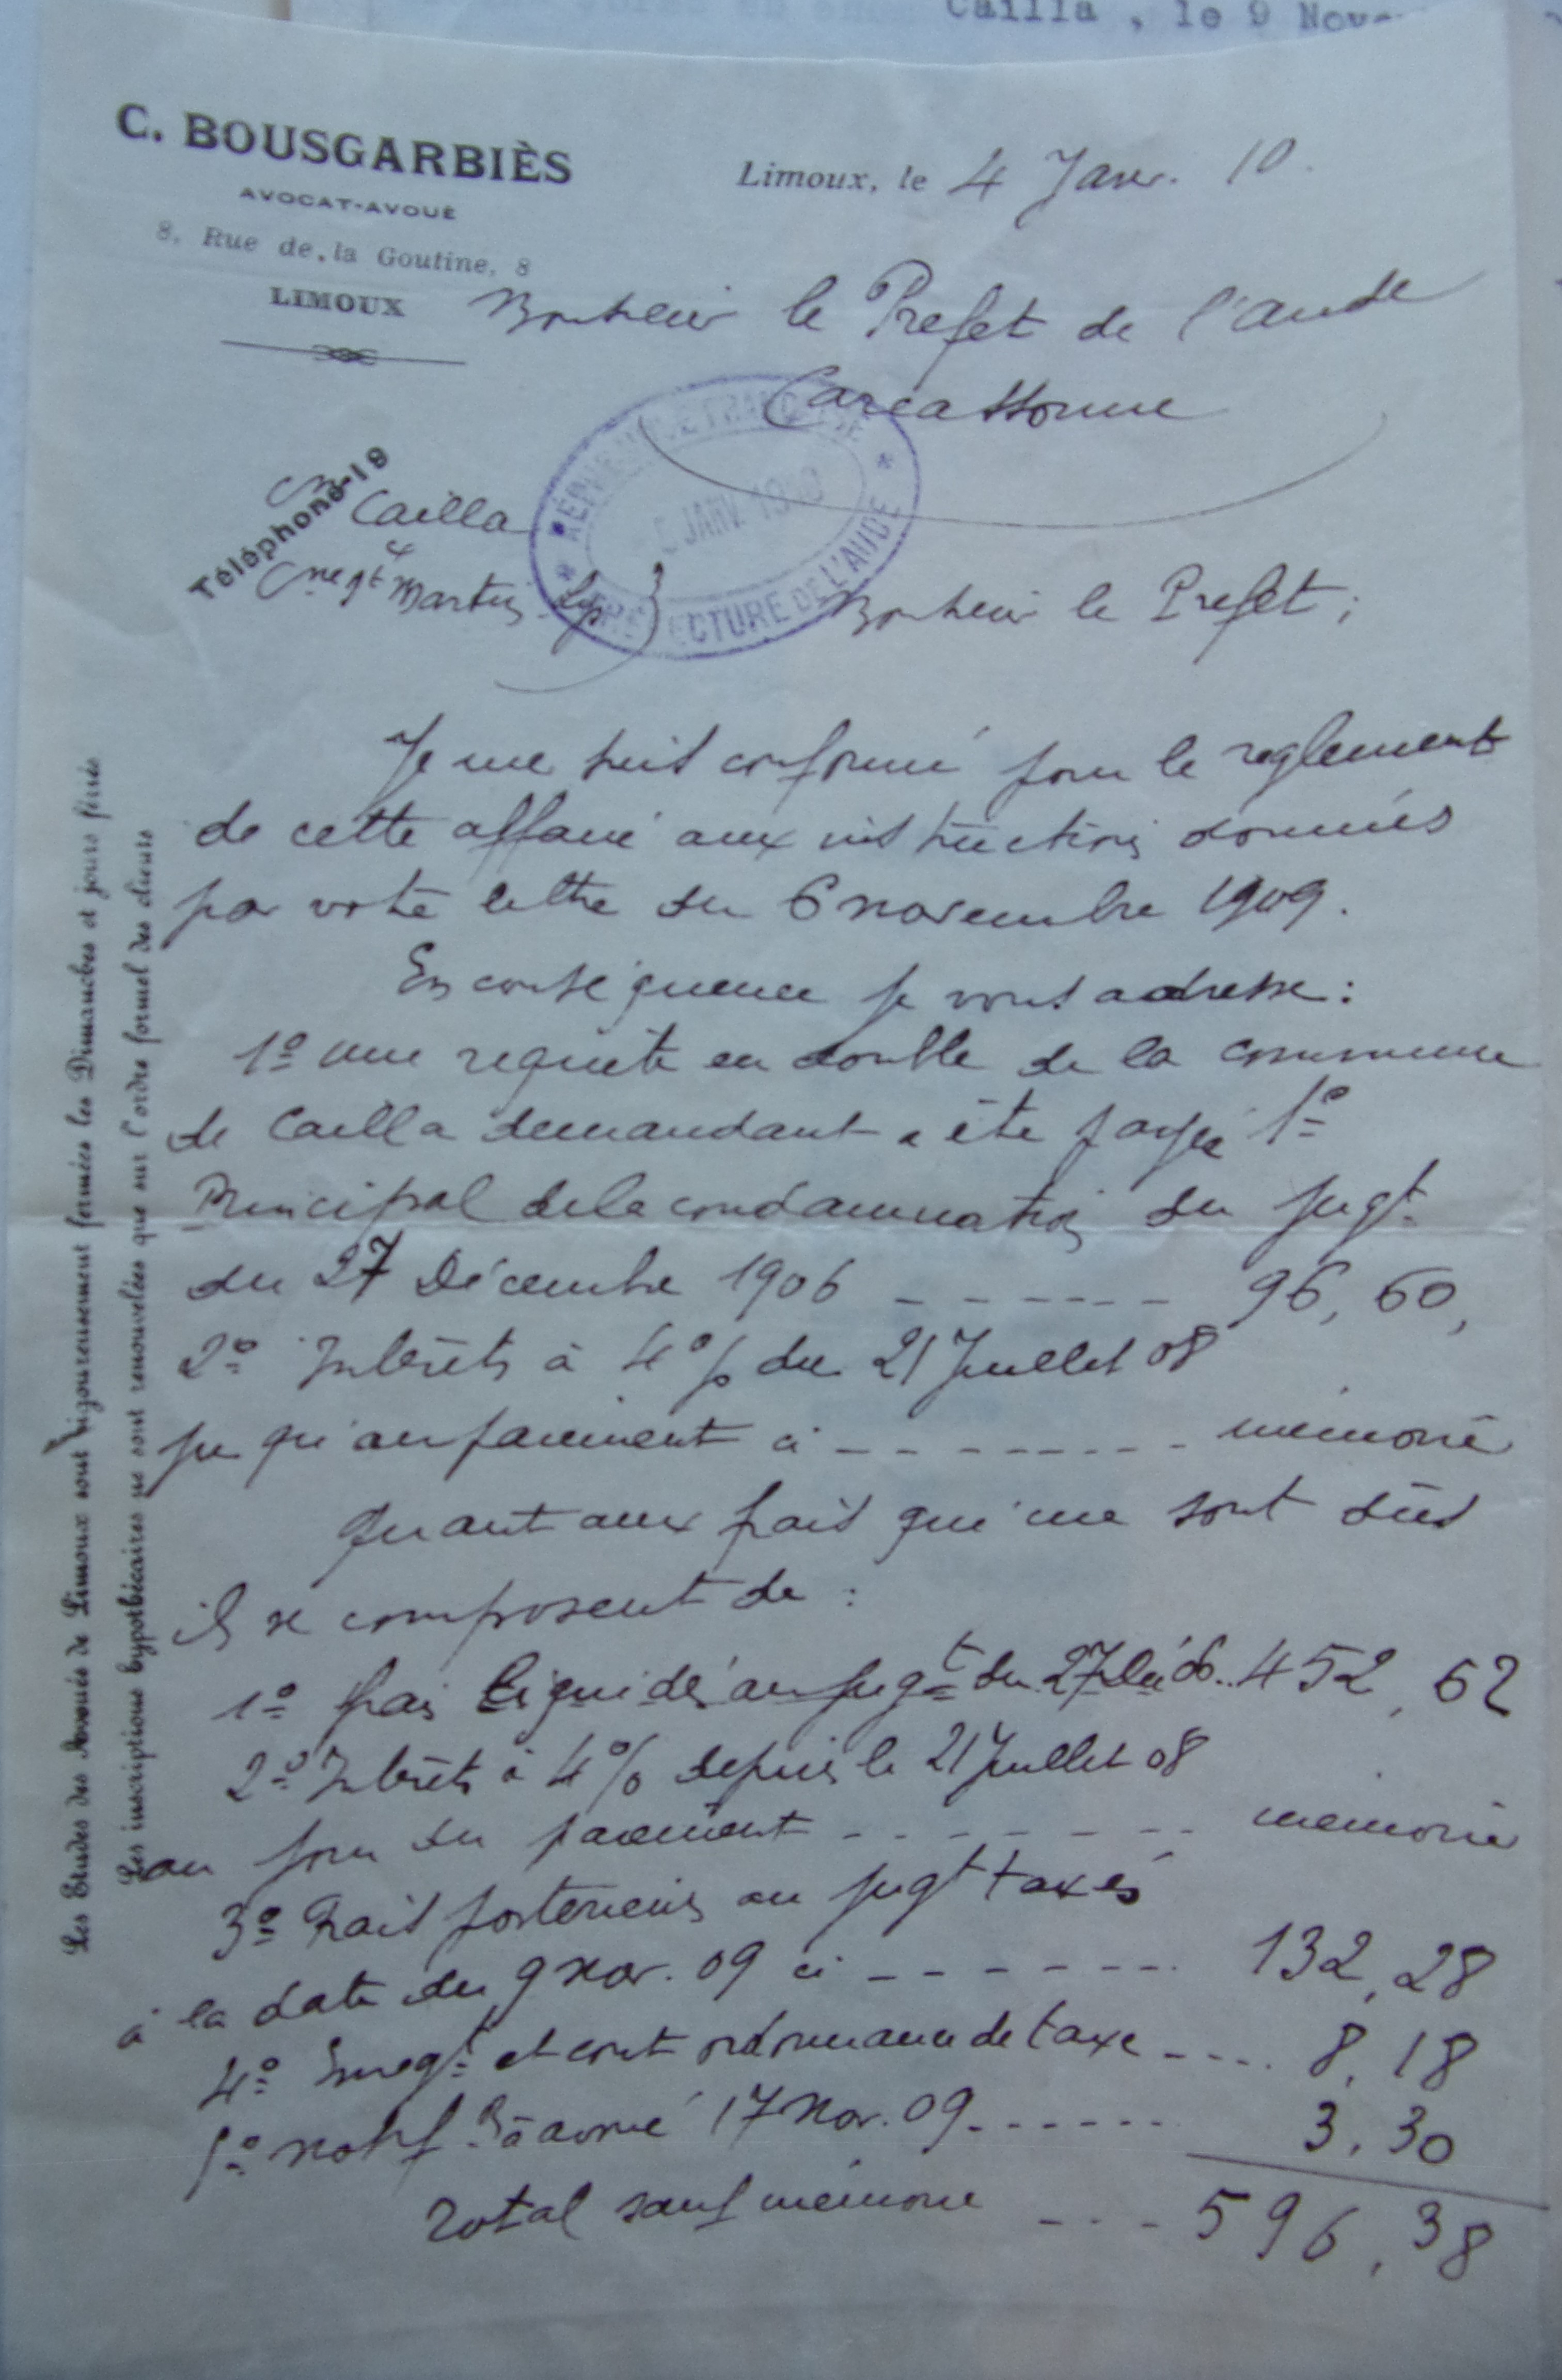 Cailla, le 9 Nove
C. BOUSGARBIÈS
AVOCAT-AVOUÉ
8, Rue de la Goutine, 8
LIMOUX
Limoux, le 4 Janv. 10.
Monsieur le Préfet de l'Aude
Carcassonne
Téléphone-19
Cailla
Martin
RÉPUBLIQUE FRANÇAISE
JANV. 19
PRÉFECTURE DE L'AUDE
Monsieur le Prefet;
Je me suis conformé pour le reglement
de cette affaire aux instructions données
par votre lettre du 6 novembre 1909.
En conséquence je vous adresse :
1º une requête en double de la commune
de Cailla demandant a être payée 1º
Principal de la condamnation du jugt
du 27 Décembre 1906 ------- 96,60,
2º Intérêts à 4% du 21 Juillet 08
jusqu'au paiement ci --------- mémoire
Quant aux frais qui me sont dûs
ils se composent de :
1º frais liquidés au jugt du 27 Dec 06.. 452,62
2º Intérêts à 4% depuis le 21 Juillet 08
au jour du paiement -------- mémoire
3º Frais posterieurs au jugt taxés
à la date du 9 nov. 09 ci ------- 132,28
4º Enregt et cout ordonnance de taxe ---- 8,18
5º notifon à avoué 17 Nov. 09 ------ 3,30
Total sauf mémoire --- 596,38
Les Etudes des Avoués de Limoux sont rigoureusement fermées les Dimanches et jours fériés
Les inscriptions hypothécaires ne sont renouvelées que sur l'ordre formel des clients